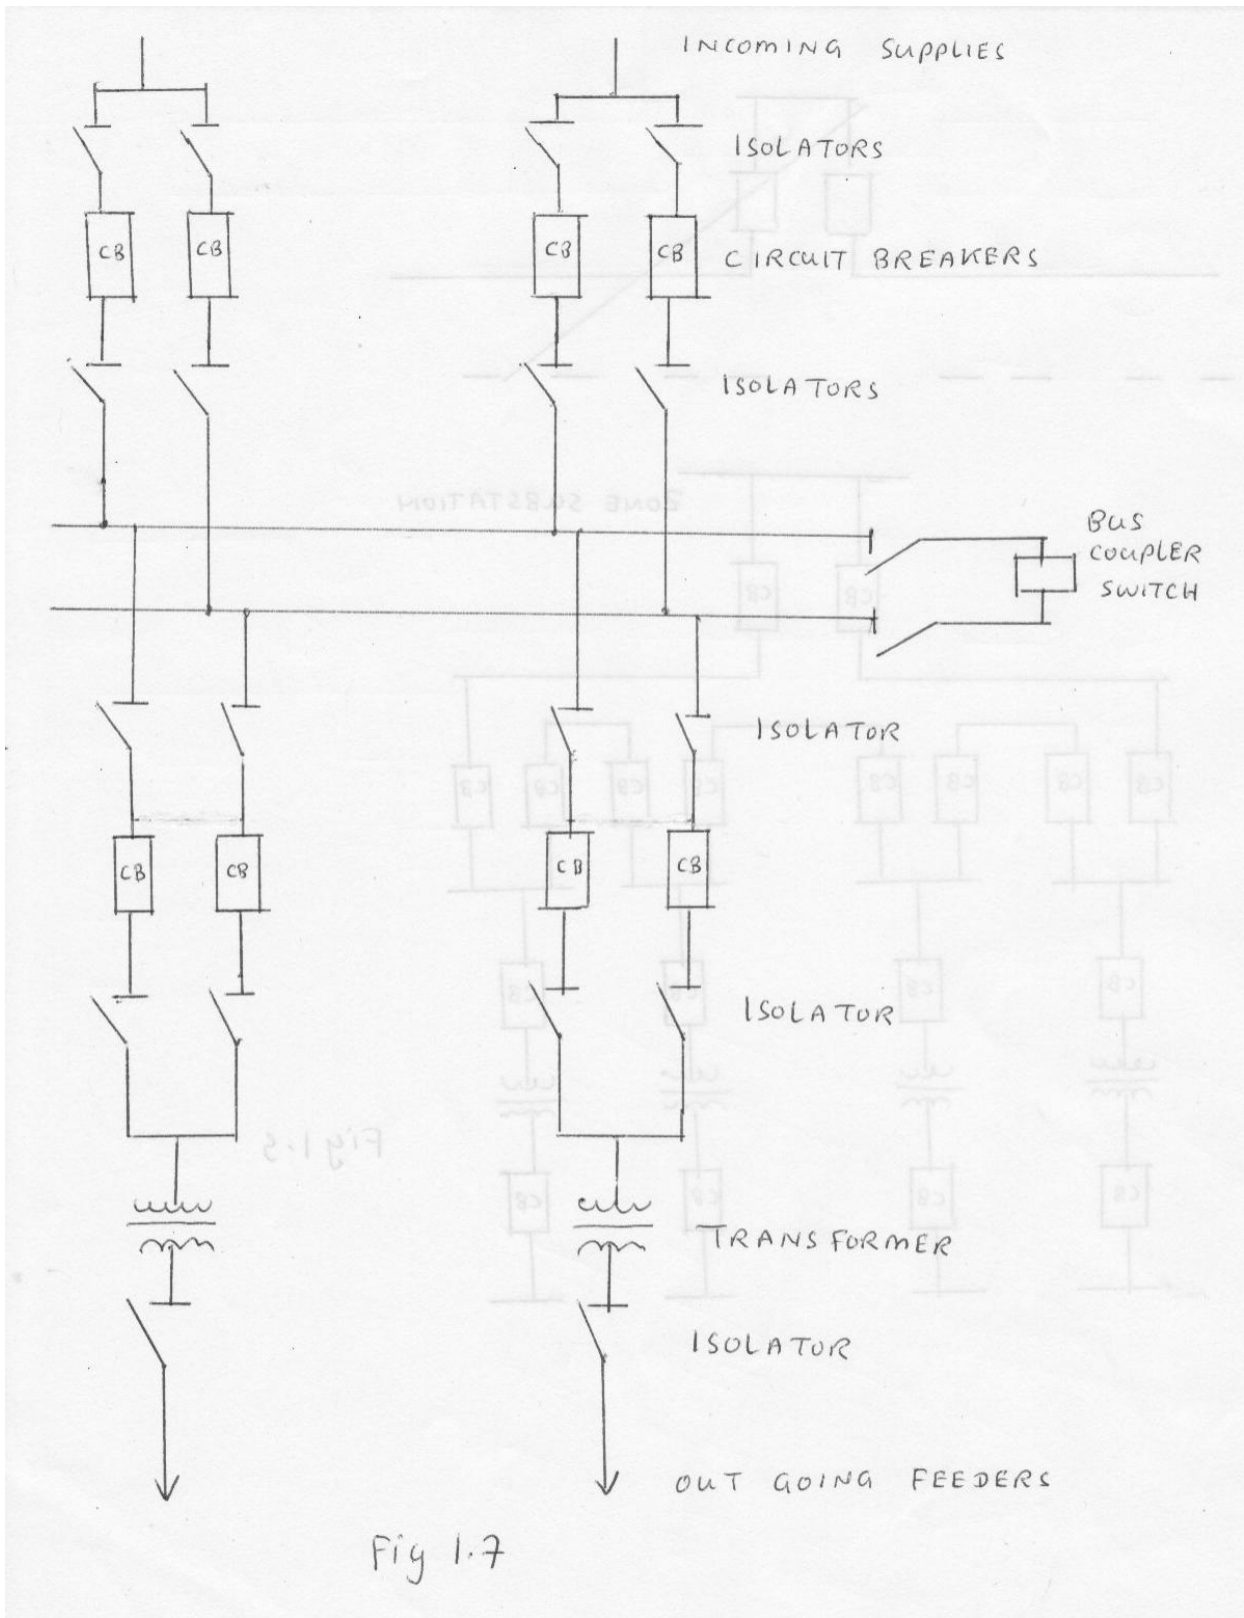 INCOMING SUPPLIES
ISOLATORS
CB CB CB CB CIRCUIT BREAKERS
ISOLATORS
BUS
COUPLER
SWITCH
ISOLATOR
CB CB CB CB
ISOLATOR
TRANSFORMER
ISOLATOR
OUT GOING FEEDERS
Fig 1.7